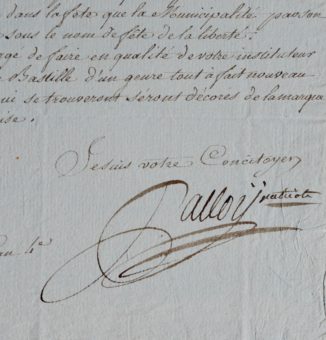 dans la fête que la Municipalité par son
sous le nom de fête de la liberté.
gé de faire en qualité de votre instituteur
Bastille d'un genre tout à fait nouveau
ui se trouveront seront décorés de la marque
ise.
Je suis votre Concitoyen
Palloy patriote
an 4e